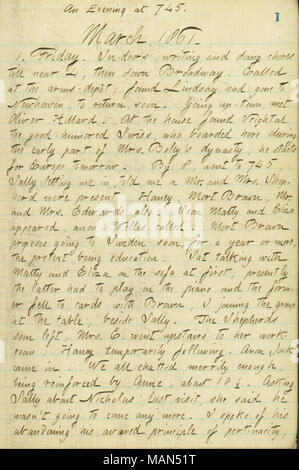 An Evening at 745.
1
March, 1861.
1. Friday. In-doors, writing and doing chores
till near 4, then down Broadway. Called
at the arms-depôt; found Lindsay had gone to
Newhaven, to return soon. Going up-town met
Oliver Hillard. At the house found Voightal
the good-humored Swiss, who boarded here during
the early part of Mrs. Boley's dynasty; he starts
for Europe tomorrow. By 8 went to 745
Sally letting me in, told me a Mr. and Mrs. Shep-
herd were present. Haney, Mort Brown, Mr.
and Mrs. Edwards also. Soon Matty and Eliza
appeared, anon Willis called. Mort Brown
proposes going to Sweden soon, for a year or more,
the pretext being education. Sat talking with
Matty and Eliza on the sofa at first; presently
the latter had to play on the piano and the form-
er fell to cards with Brown, I joining the group
at the table, beside Sally. The Shepherds
soon left, Mrs. E. went upstairs to her work-
room, Haney temporarily following. Anon Jack
came in. We all chatted merrily enough,
being reinforced by Anne, about 10 ½. Asking
Sally about Nicholas' last visit, she said he
wasn't going to come any more. I spoke of his
abandoning his avowed principle of pertinacity,
alamy
MAN51T